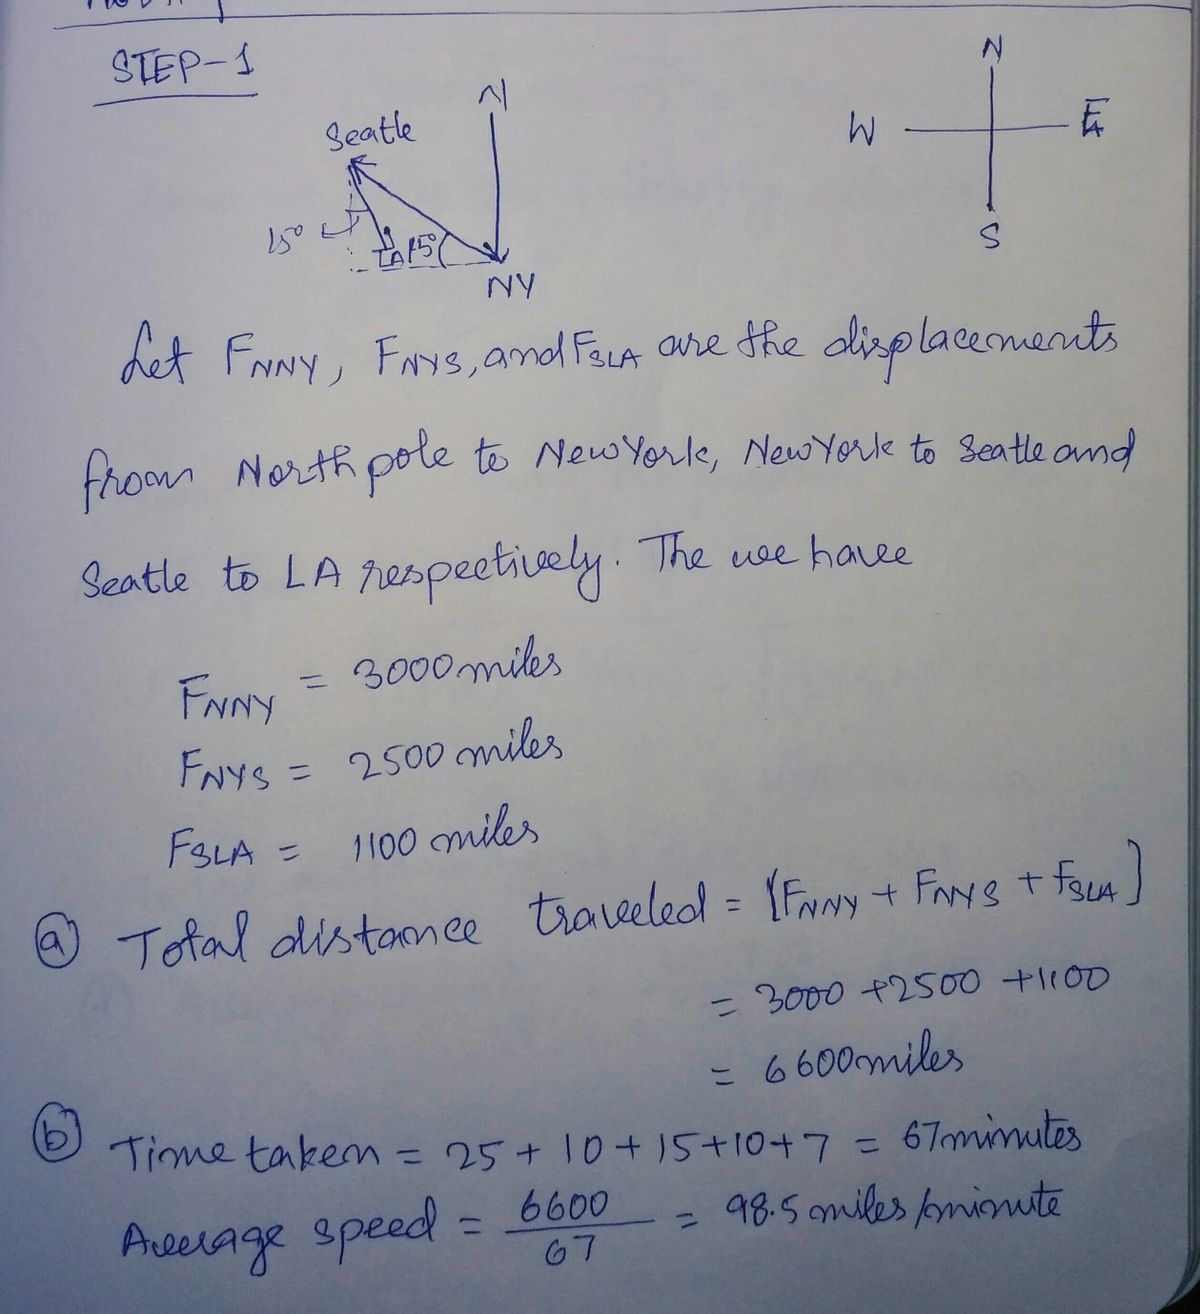 STEP-1
N
N
Seatle
W
E
15°
LA
15°
S
NY
Let FNNY, FNYS, and FSLA are the displacements
from North pole to NewYork, NewYork to Seatle and
Seatle to LA respectively. The we have
FNNY = 3000 miles
FNYS = 2500 miles
FSLA = 1100 miles
(a) Total distance traveled = [FNNY + FNYS + FSLA]
= 3000 + 2500 + 1100
= 6600 miles
(b) Time taken = 25 + 10 + 15 + 10 + 7 = 67 minutes
Average speed = 6600 / 67 = 98.5 miles/minute